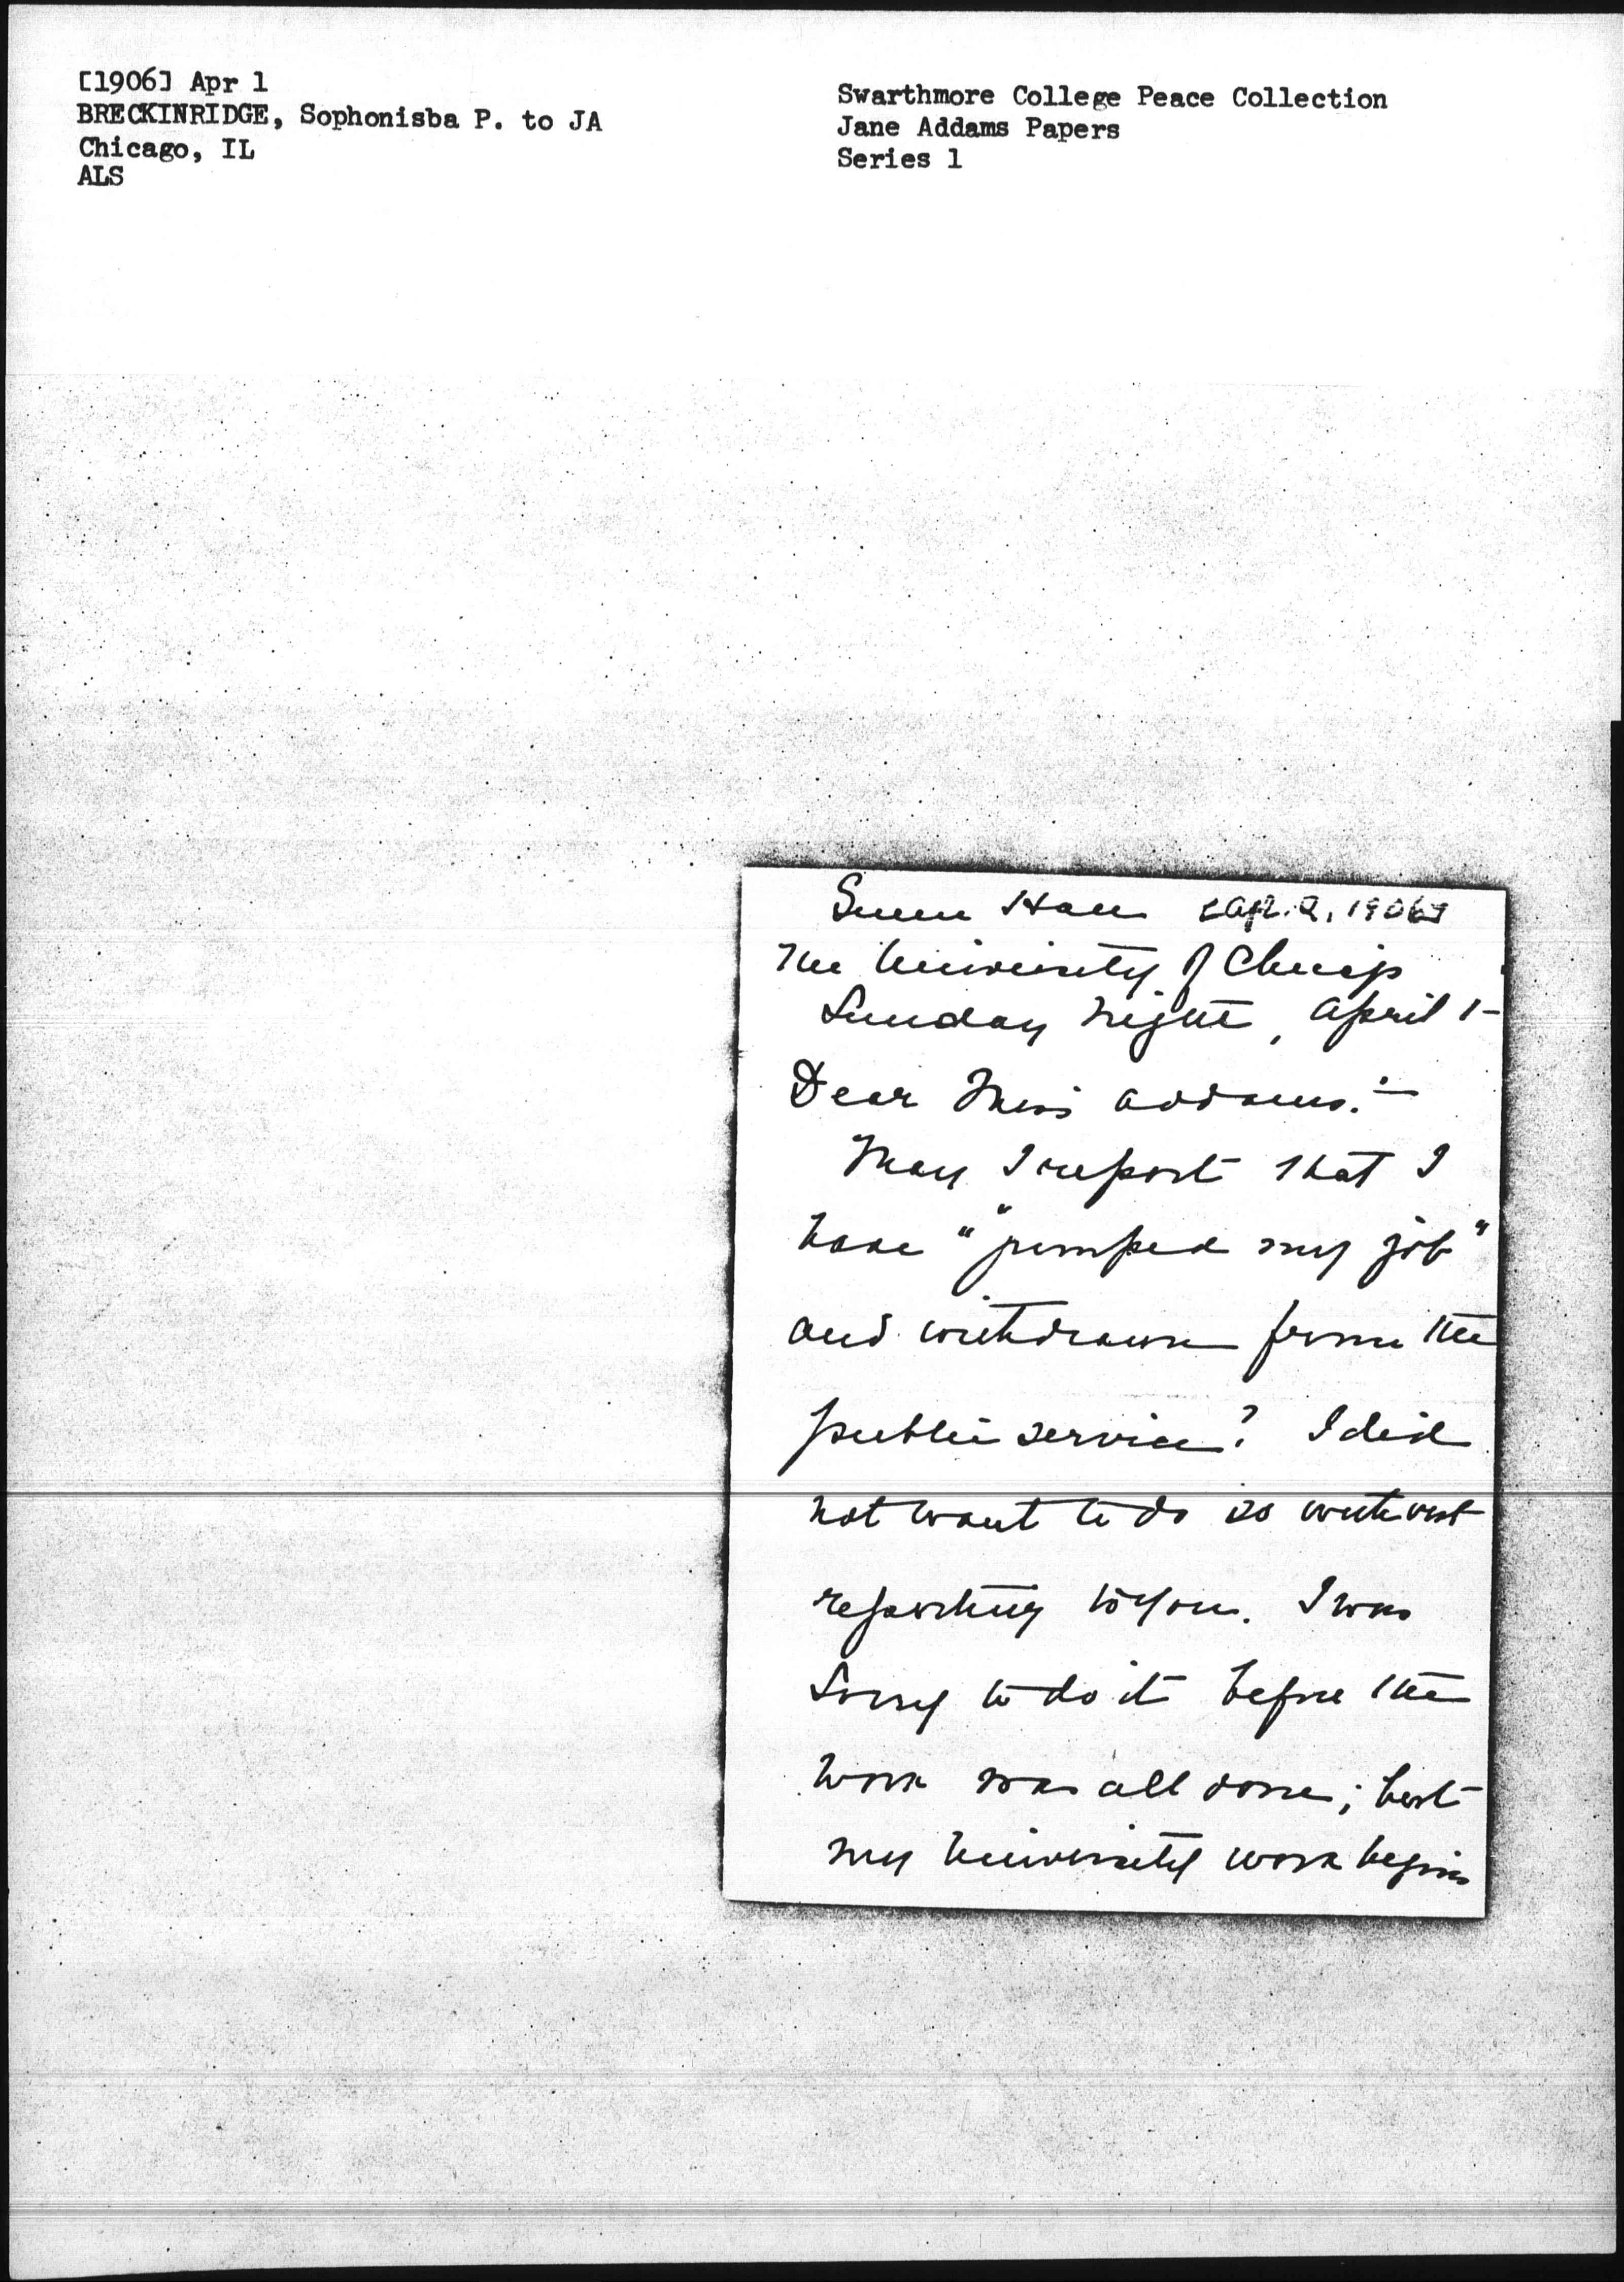 [1906] Apr 1
BRECKINRIDGE, Sophonisba P. to JA
Chicago, IL
ALS
Swarthmore College Peace Collection
Jane Addams Papers
Series 1
Green Hall [Apr. 2, 1906]
The University of Chicago
Sunday night, April 1-
Dear Miss Addams:-
May I report that I
have "jumped my job"
and withdrawn from the
public service? I did
not want to do so without
reporting to you. I was
sorry to do it before the
work was all done; but
my University work begins